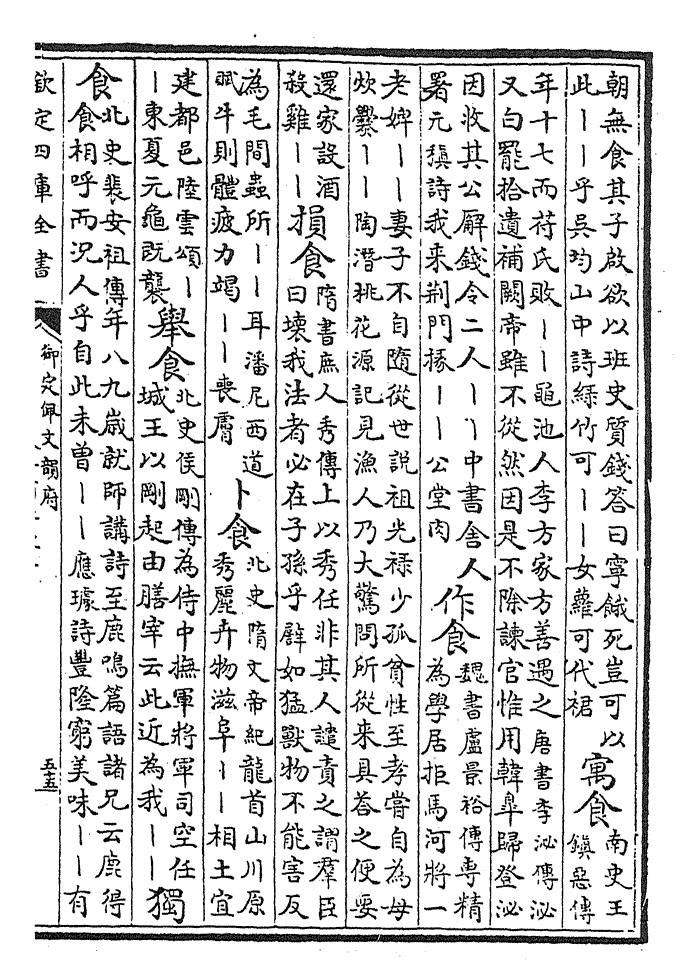 朝無食其子啟欲以班史質錢答曰寧餓死豈可以
此丨丨乎吳均山中詩綠竹可丨丨女蘿可代裙
寓食
南史王
鎮惡傳
年十七而苻氏敗丨丨黽池人李方家方善遇之唐書李泌傳泌
又白罷拾遺補闕帝雖不從然因是不除諫官惟用韓臯歸登泌
因收其公廨錢令二人丨丨中書舍人
署元稹詩我来荆門掾丨丨公堂肉
作食
魏書盧景裕傳專精
為學居拒馬河將一
老婢丨丨妻子不自隨從世説祖光禄少孤貧性至孝嘗自為母
炊爨丨丨陶潛桃花源記見漁人乃大驚問所從来具荅之便要
還家設酒
殺雞丨丨
損食
隋書庶人秀傳上以秀任非其人譴責之謂羣臣
曰壞我法者必在子孫乎譬如猛獸物不能害反
為毛間蟲所丨丨耳潘尼西道
賦牛則體疲力竭丨丨喪膚
卜食
北史隋文帝紀龍首山川原
秀麗卉物滋阜丨丨相土宜
建都邑陸雲頌丨
丨東夏元龜既襲
舉食
北史侯剛傳為侍中撫軍將軍司空任
城王以剛起由膳宰云此近為我丨丨
獨
食
北史裴安祖傳年八九歲就師講詩至鹿鳴篇語諸兄云鹿得
食相呼而況人乎自此未曾丨丨應璩詩豐隆窮美味丨丨有
欽定四庫全書
御定佩文韻府
五十五